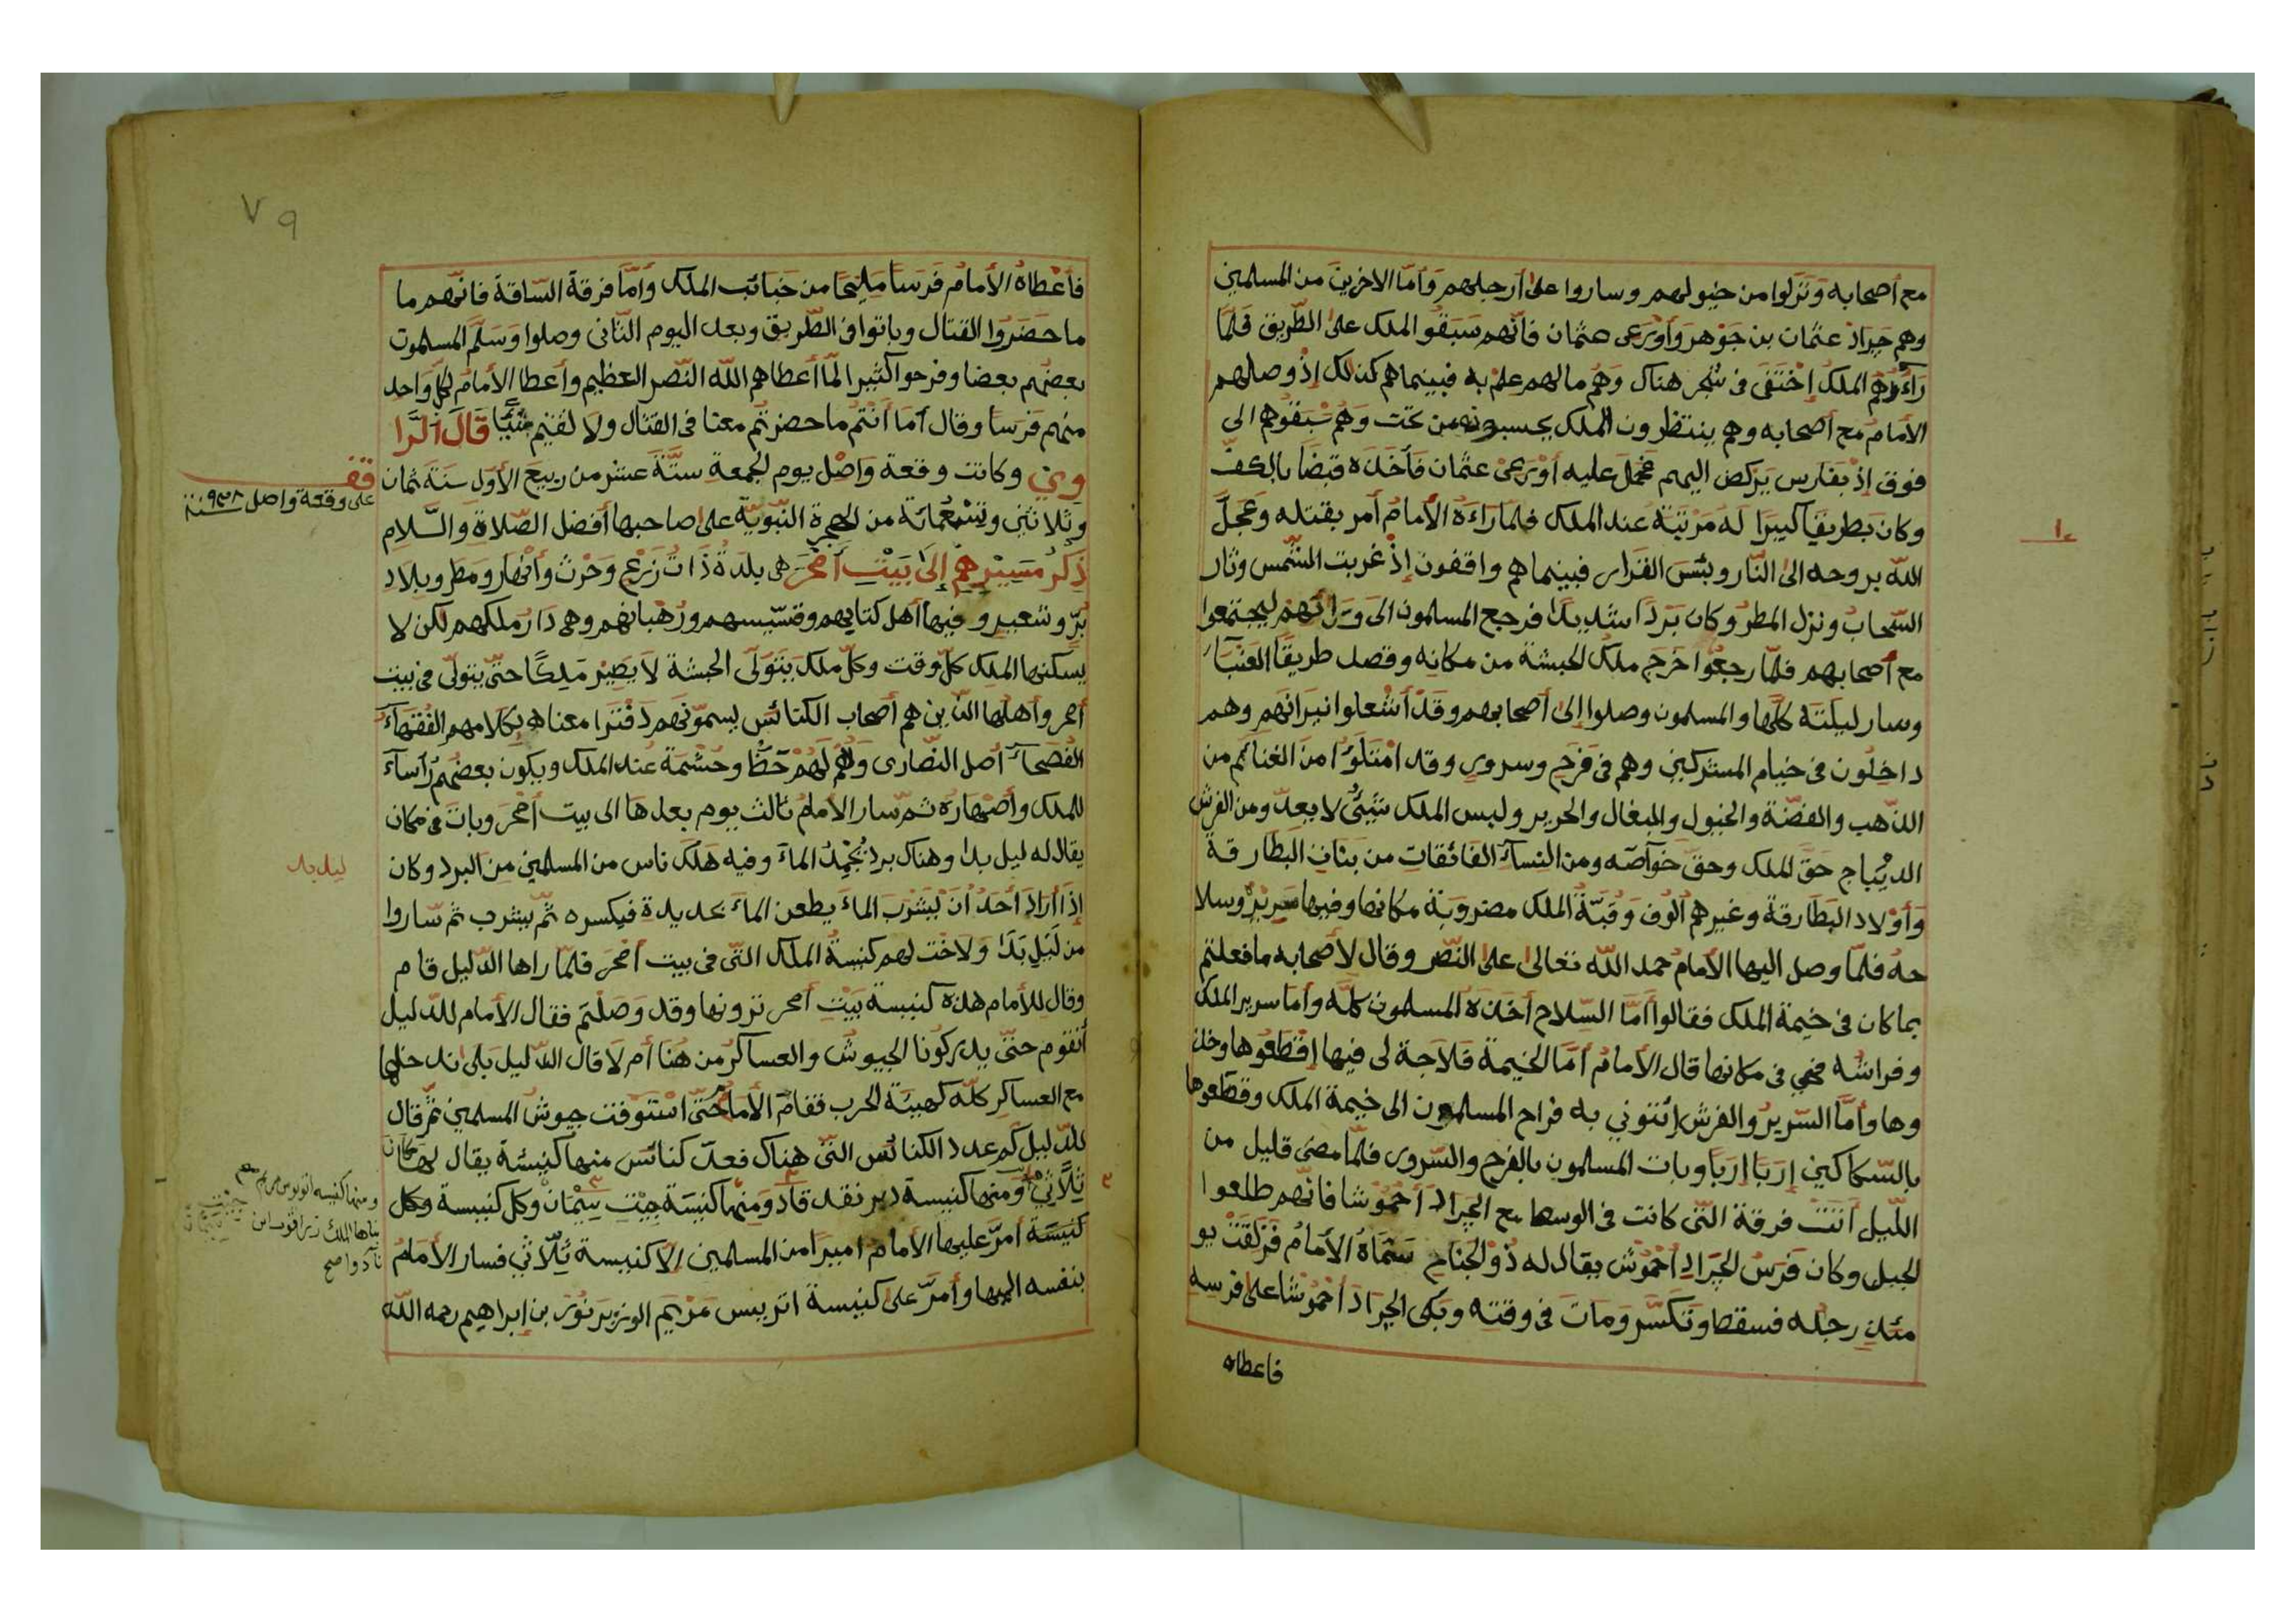 مع أصحابه وَنَزَلوا من خيولهم وساروا على أرجلهم وَأمّا الاخرين من المسلمين
وهم جَراد عثمان بن جَوْهر وَأوْرَعى عثمان فانّهم سَبَقُو الملك على الطّريق فلمّا
رَآءَهُم الملكُ إخْتَفَى فى شجر هناك وَهُم مالهم عِلمْ به فبينماهم كذلك إذْ وصالهم
الأمامُ مع أصحابه وهم ينتظرون الملك يحسبونه من تحت وَهُم سَبَقُوهم الى
فوق إذْ بفارس يَركض اليهم فحَمَلَ عليه أوْرعى عثمان فَأخَذه قبضًا بالكفّ
وكان بَطريقًا كبيرًا لهُ مَرْتبَة عند الملك فلما رَاءَهُ الأمامُ أمر بقتله وَعجّلَ
اللّه بروحه الى النّار وبئسَ القرار فبينماهم واقفون إذْ غربت الشّمس وثار
السّحابُ ونزل المطرُ وكان بَردًا شديدا فرجع المسلمون الى وَرَائهم ليجتمعوا
مع أصحابهم فلمّا رجعُوا خَرَج ملك الحبشة من مكانه وقصد طريقًا
وسار ليلته كلّها والمسلمون وصلوا إلى أصحابهم وقَدْ أشعلوا نيرانَهم وهم
داخِلُون فى خيام المشركين وهم فى فَرَحٍ وسرورٍ وقد امْتَلَؤُا من الغنائم من
الذّهب والفضّة والخيول والبغال والحرير ولبس الملك شَئٌ لا يعدّ ومن الفرش
الديْباج حَقَّ الملك وحقّ خَوَآصّه ومن النسآءِ الفائقاتِ من بناتِ البَطارِقة
وَأوْلاد البَطَارقة وغيرهم ألوف وَقبّةُ الملك مضروبَة مكانها وفيها سَريْرُه وسلا
حهُ فلمّا وصل اليها الأمامُ حمد اللّه تعالى على النّصر وقال لأصحابه مافعلتم
بما كان فى خيمة الملك فقالوا أمَّا السّلاح أخَذهُ المسلمون كلّه وأما سرير الملك
وفراشُه فهي فى مكانها قال الأمامُ أمّا الخيمة فَلاَحجة لى فيها إقْطَعُوها وخذ
وها وأمّا السّريرُ والفرش إئتوني به فراح المسلمون الى خيمة الملك وقطّعوها
بالسّكاكين إرَبًا إرَبًا وبات المسلمون بالفرح والسّرور فلمّا مضى قليل من
اللّيل أتتْ فرقة التى كانت فى الوسط مع الجَراد أحْمُوشا فانّهم طلعوا
الجبل وكان فَرَسُ الجَرادِ أحْمُوش يقال له ذُوْ الجَناح سَمَّاهُ الأمامُ فَزلقَتْ يو
مئذٍ رجله فسقط وَتكسَّر وَماتَ فى وقته وبَكى الجرَادَ أحْمُوشا على فرسه
فاعطاه
٧٩
فأعْطاهُ الأمامُ فَرسًا مَلِيحًا من جَنائب الملك وأمَّا فرقة السّاقة فانهم ما
ما حَضَرُوا القتال وباتوا فى الطّريق وبعد اليوم الثانى وصلوا وَسَلّمَ المسلمون
بعضُهم بعضا وفرحوا كثيرا لمّا أعطاهم اللّه النّصر العظيم وأعطا الأمامُ لكلّ واحد
منهم فَرَسًا وقال أما أنتُم ماحضرتُم معنا فى القتال ولا لقيتم شَيْئًا قالَ الرّا
وِي وكانت وقعة وَاصْل يوم الجمعة ستَّة عشر من ربيع الأول سَنة ثمان
وثلاثين وتسْعُمائة من الهجرة النّبويّة على صاحبها أفضل الصّلاة والسّلام
ذِكرُ مَسِيْرِهِمْ إلَى بَيْتِ أمْحَرَ هى بلدَة ذَاتُ زَرْعٍ وَحَرْث وأنْهار ومَطر وبلاد
بُرّ وشعير وفيها أهل كتابهم وقسّيسهم ورُهْبانهم وهى دَارُ ملكهم لكن لا
يسكنها الملك كلّ وقت وكلّ ملك يَتَوَلّى الحبشة لاَ يَصِيْر مَلِكًا حتّى يتولّى فى بيت
أمحر وأهلها الّذين هم أصحاب الكنائس يسمّونهم دَفْتَرا معناه بكلامهم الفُقهآءَ
الفُصحآءَ أصل النّصارى وَلهُم حَظٌّ وحُشْمَة عند الملك ويكون بعضُهم رُأسآءَ
للملك وأصْهارهُ ثمّ سار الأمامُ ثالث يوم بعدها الى بيت أمْحَرَ وباتَ فى مكان
يقال له ليل بدا وهناك برد يُجَمِّدُ المآءَ وفيه هَلَكَ ناس من المسلمين مِن البرد وكان
إذَا أرَادَ أحَدٌ أنْ يَشْرَب المآءَ يطعن المآءَ بحديدة فيكسره ثمّ يشرب ثم سّاروا
من لَيل بَدَا ولاحَت لهم كنيسةُ الملك التّى فى بيت أمْحَرَ فلمّا راها الدّليل قام
وقال للأمام هذه كنيسة بَيْتِ أمحر ترونها وقد وَصَلْتم فقال الأمام للدّليل
أنَقوم حتّى يدركُونا الجيوشُ والعساكرُ من هُنا أم لاَ قال الدّليل بلى ندخلها
مع العساكر كلّه كهيئة الحرب فقامَ الأمامُ حتّى اسْتَوفت جيوش المسلمين ثمّ قال
للدّليل كم عدد الكنائس التى هناك فعدّ كنائس منها كنيسة يقال لها مكان
ثلَاثيْ ومنها كنيسة دبر نقدقاد وَمنها كنيسَة جِيْت سِيْمَان وكل كنيسة وكل
كنيسَة أمّرَ عليها الأمام اميرًا من المسلمين إلاّ كنيسة ثلّاثي فسار الأمامُ
بنفسه اليها وأمّرَ على كنيسة اتريس مَرْيَم الوزير نُوْر بن إبراهيم رحمه اللّه
قف
على وقعة واصل سنة ٩٣٨
ليل بدا